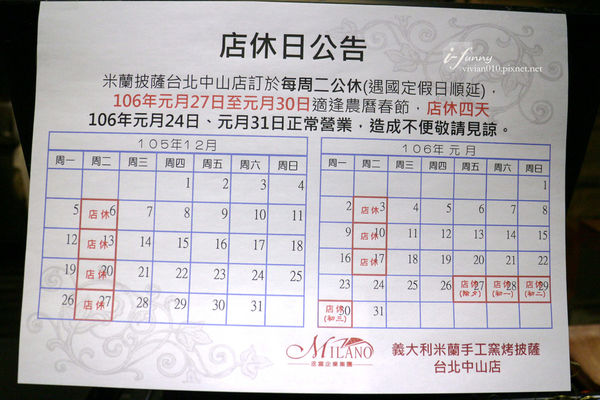 店休日公告
i-funny
vivian010.pixnet.net
米蘭披薩台北中山店訂於每周二公休(遇國定假日順延),
106年元月27日至元月30日適逢農曆春節,店休四天
106年元月24日、元月31日正常營業,造成不便敬請見諒。
105年12月
周一 周二 周三 周四 周五 周六 周日
1 2 3 4
5 店休6 7 8 9 10 11
12 店休13 14 15 16 17 18
19 店休20 21 22 23 24 25
26 店休27 28 29 30 31
106年元月
周一 周二 周三 周四 周五 周六 周日
1
2 店休3 4 5 6 7 8
9 店休10 11 12 13 14 15
16 店休17 18 19 20 21 22
23 24 25 26 店休27 店休28 店休29
(除夕) (初一) (初二)
店休30 31
(初三)
MILANO
義大利米蘭手工窯烤披薩
台北中山店